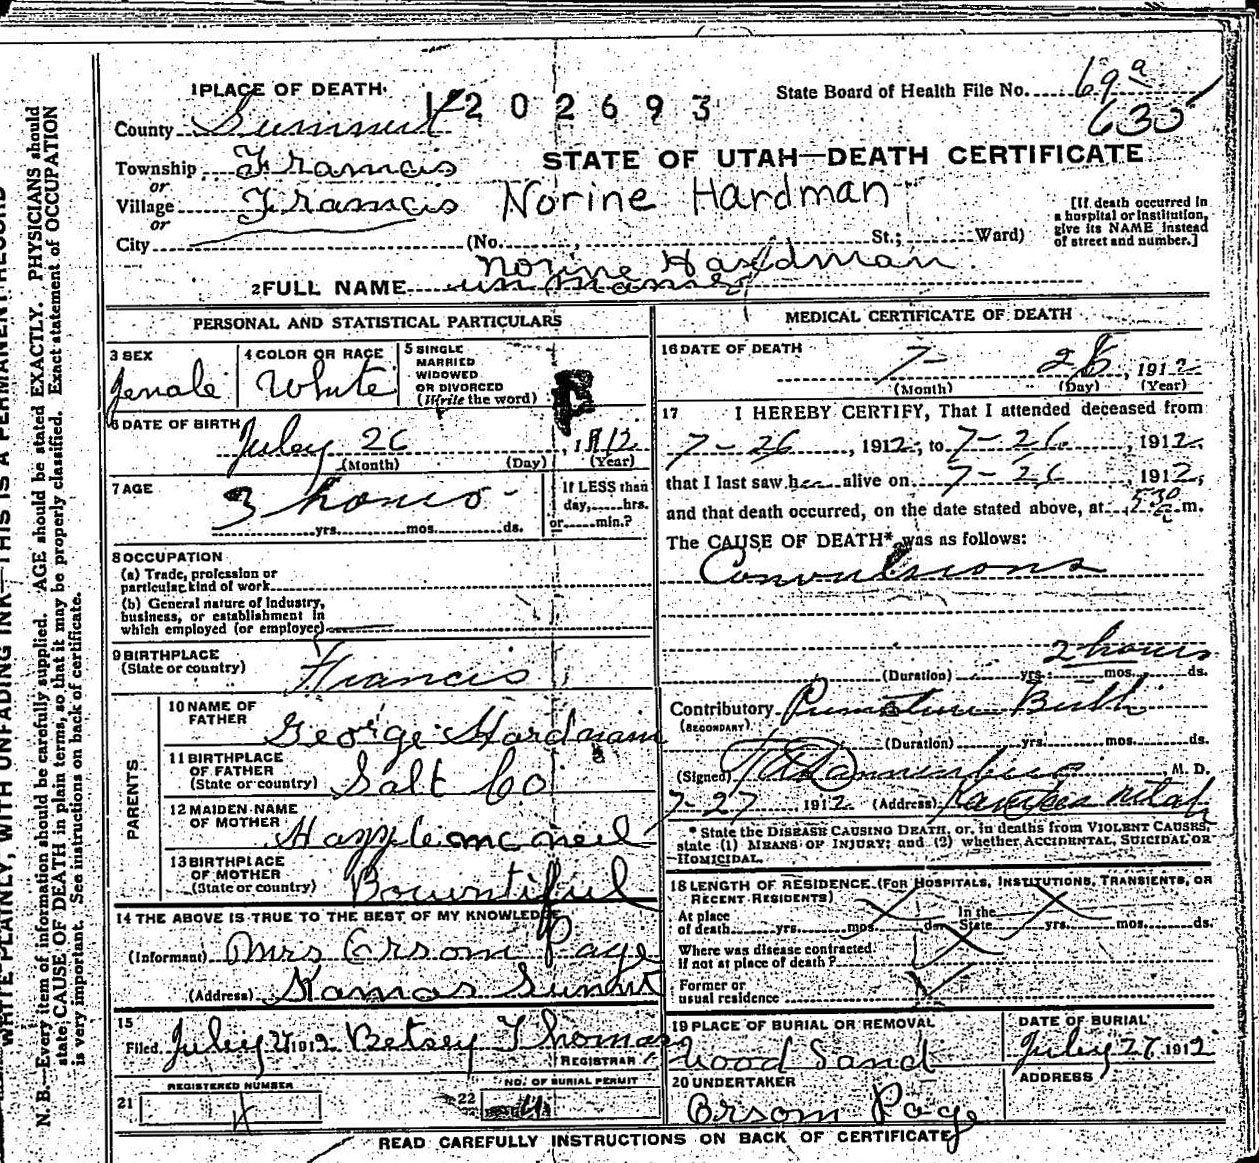 1 PLACE OF DEATH
1202693
State Board of Health File No. 69 a
630
County Summit
STATE OF UTAH—DEATH CERTIFICATE
Township Francis
or
Village Francis
Norine Hardman
or
City (No. , St.; Ward)
[If death occurred in
a hospital or institution,
give its NAME instead
of street and number.]
Norine Hardman
2 FULL NAME
PERSONAL AND STATISTICAL PARTICULARS
3 SEX
Female
4 COLOR OR RACE
White
5 SINGLE
MARRIED
WIDOWED
OR DIVORCED
(Write the word)
6 DATE OF BIRTH
July 26, 1912
(Month) (Day) (Year)
7 AGE
3 hours
yrs. mos. ds.
If LESS than
day, hrs.
or min.?
8 OCCUPATION
(a) Trade, profession or
particular kind of work
(b) General nature of industry,
business, or establishment in
which employed (or employer)
9 BIRTHPLACE
(State or country)
Francis
PARENTS
10 NAME OF
FATHER
George Hardman
11 BIRTHPLACE
OF FATHER
(State or country)
Salt Co
12 MAIDEN NAME
OF MOTHER
13 BIRTHPLACE
OF MOTHER
(State or country)
Bountiful
14 THE ABOVE IS TRUE TO THE BEST OF MY KNOWLEDGE
(Informant) Mrs Orsom Page
(Address) Kamas Summit
15
Filed July 27 1912 Betsey Thomas
REGISTRAR
REGISTERED NUMBER
21
NO. OF BURIAL PERMIT
22
MEDICAL CERTIFICATE OF DEATH
16 DATE OF DEATH
7- 26, 1912
(Month) (Day) (Year)
17 I HEREBY CERTIFY, That I attended deceased from
7-26, 1912, to 7-26, 1912,
that I last saw her alive on 7-26 1912,
and that death occurred, on the date stated above, at 5:30 a m.
The CAUSE OF DEATH* was as follows:
Convulsions
2 hours
(Duration) yrs. mos. ds.
Contributory Premature Birth
(SECONDARY)
(Duration) yrs. mos. ds.
(Signed) M. D.
7-27 1912 (Address) Utah
* State the DISEASE CAUSING DEATH, or, in deaths from VIOLENT CAUSES,
state (1) MEANS OF INJURY; and (2) whether ACCIDENTAL, SUICIDAL OR
HOMICIDAL.
18 LENGTH OF RESIDENCE (FOR HOSPITALS, INSTITUTIONS, TRANSIENTS, OR
RECENT RESIDENTS)
At place
of death yrs. mos. ds.
In the
State yrs. mos. ds.
Where was disease contracted
if not at place of death?
Former or
usual residence
19 PLACE OF BURIAL OR REMOVAL
Wood Sand
DATE OF BURIAL
July 27 1912
20 UNDERTAKER
Orsom Page
ADDRESS
READ CAREFULLY INSTRUCTIONS ON BACK OF CERTIFICATE
WRITE PLAINLY, WITH UNFADING INK—THIS IS A PERMANENT RECORD
N. B.—Every item of information should be carefully supplied. AGE should be stated EXACTLY. PHYSICIANS should
state CAUSE OF DEATH in plain terms, so that it may be properly classified. Exact statement of OCCUPATION
is very important. See instructions on back of certificate.